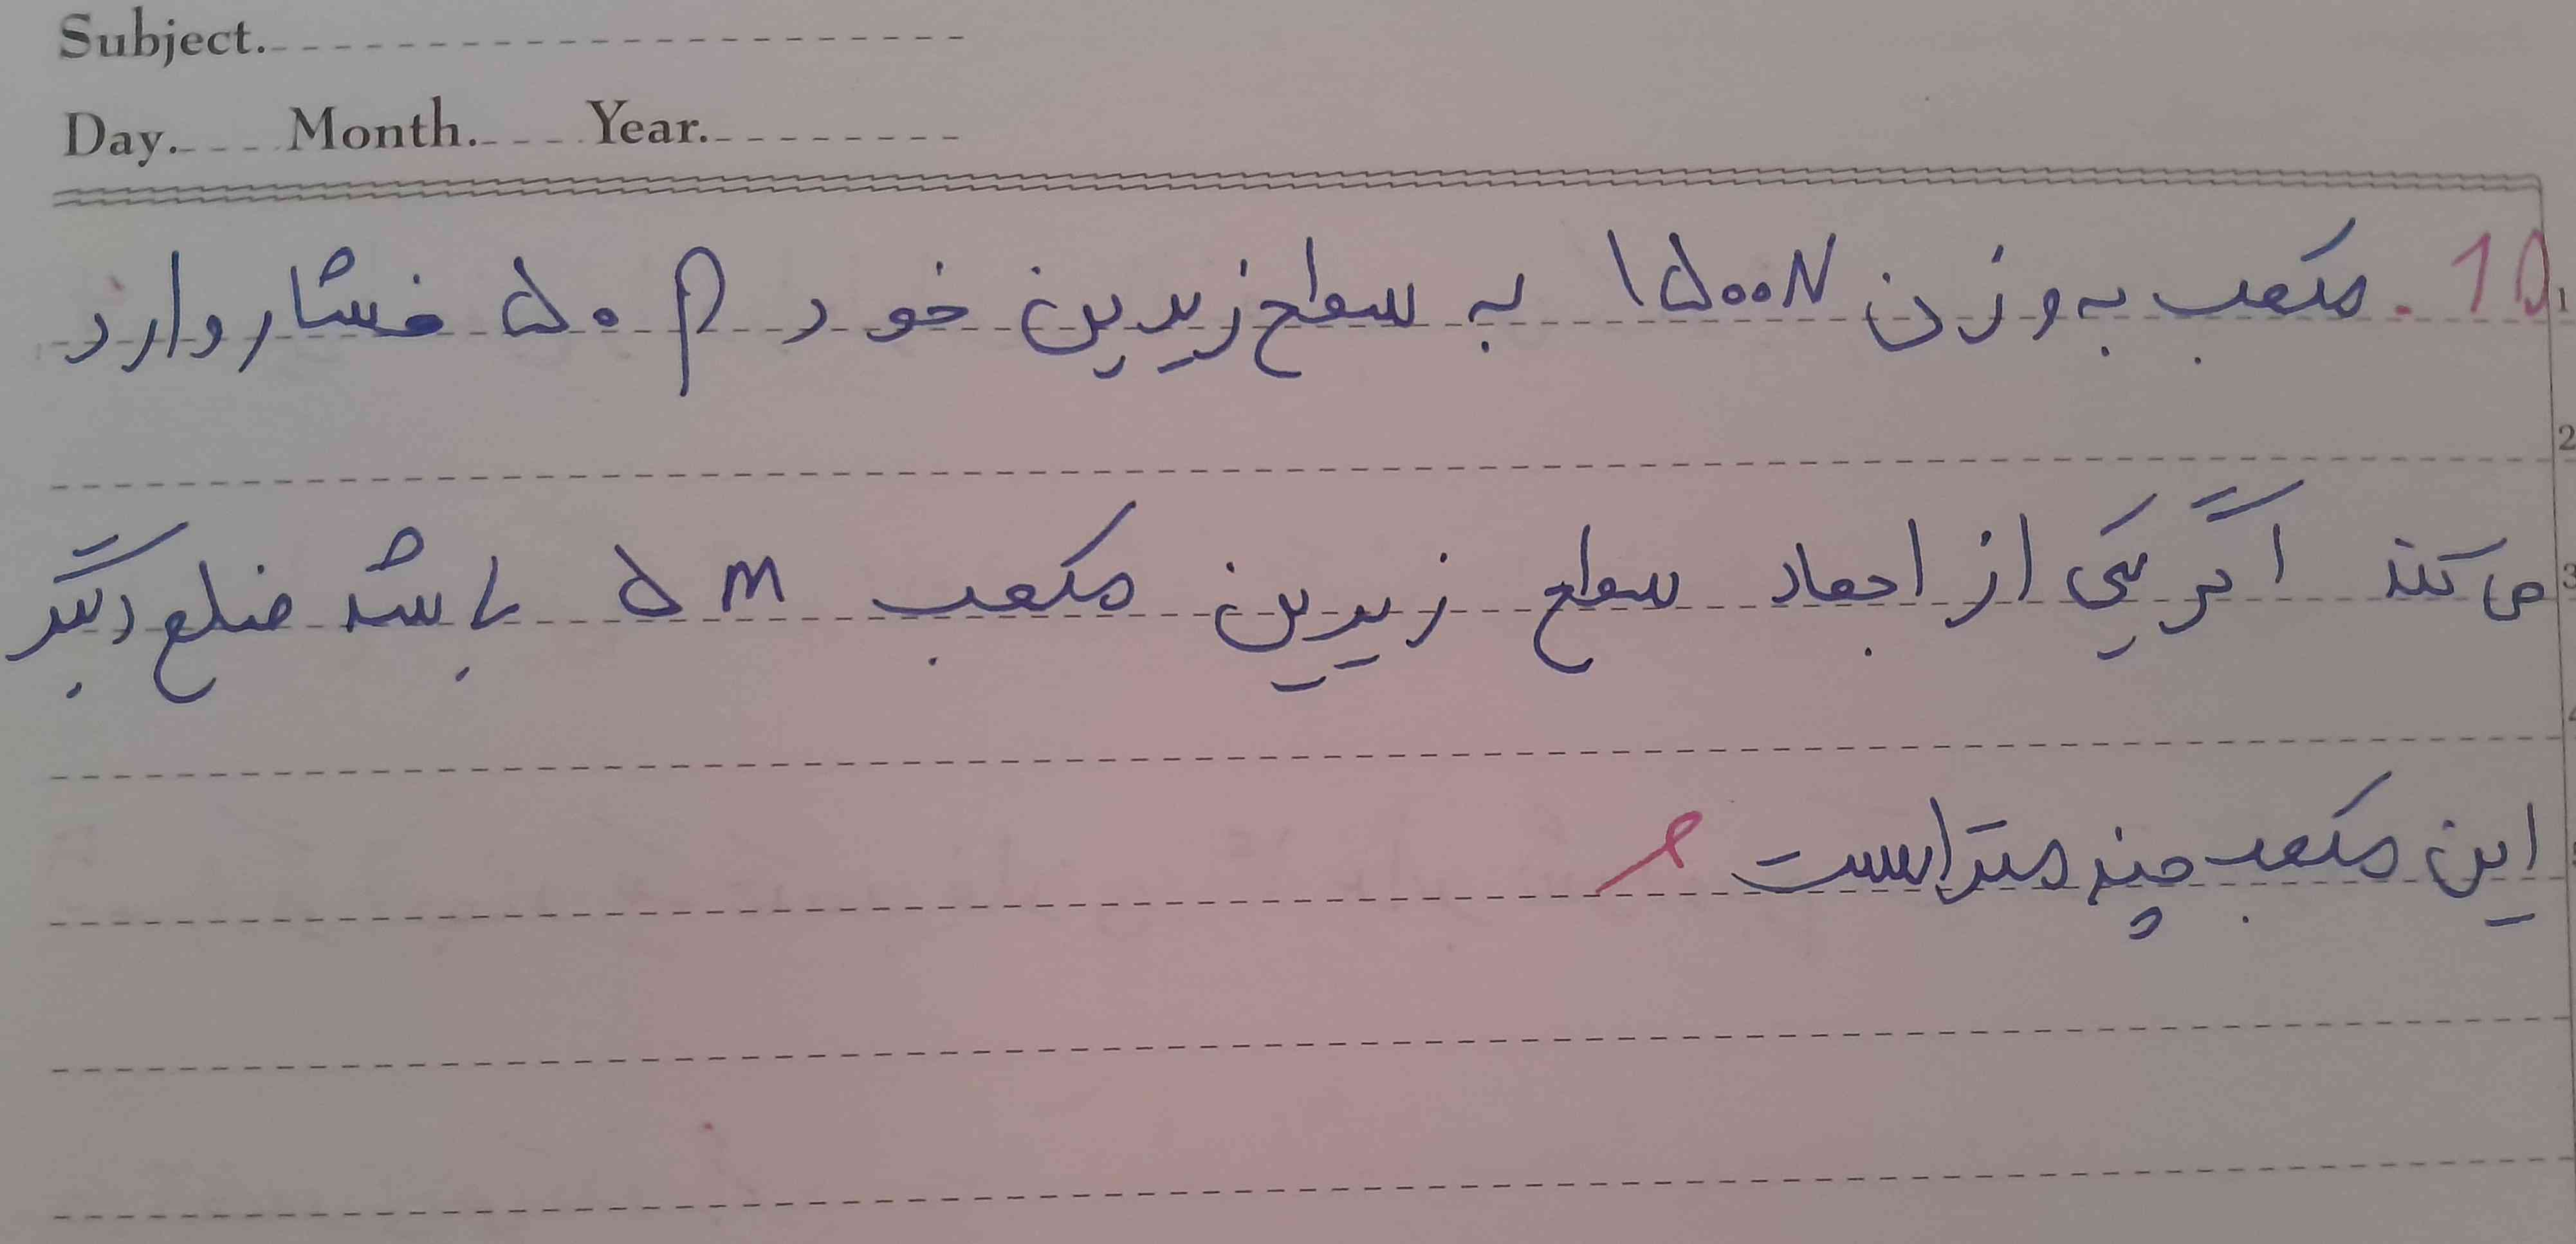 Subject.
Day. Month. Year.
10. مکعب به وزن ۱۵۰۰N به سطح زیرین خود ۵۰ p فشار وارد
1
2
می کند اگر یکی از ابعاد سطح زیرین مکعب ۵ m باشد ضلع دیگر
3
4
این مکعب چند متر است؟
5